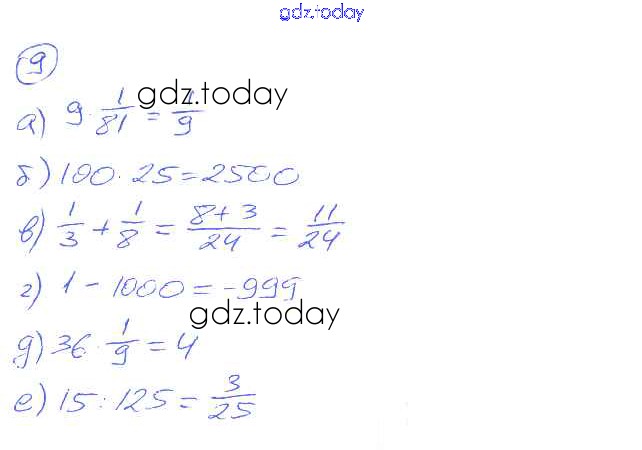 gdz.today
9
а) 9 · 1/81 = 1/9
gdz.today
б) 100 · 25 = 2500
в) 1/3 + 1/8 = (8+3)/24 = 11/24
г) 1 - 1000 = -999
gdz.today
д) 36 · 1/9 = 4
е) 15 : 125 = 3/25